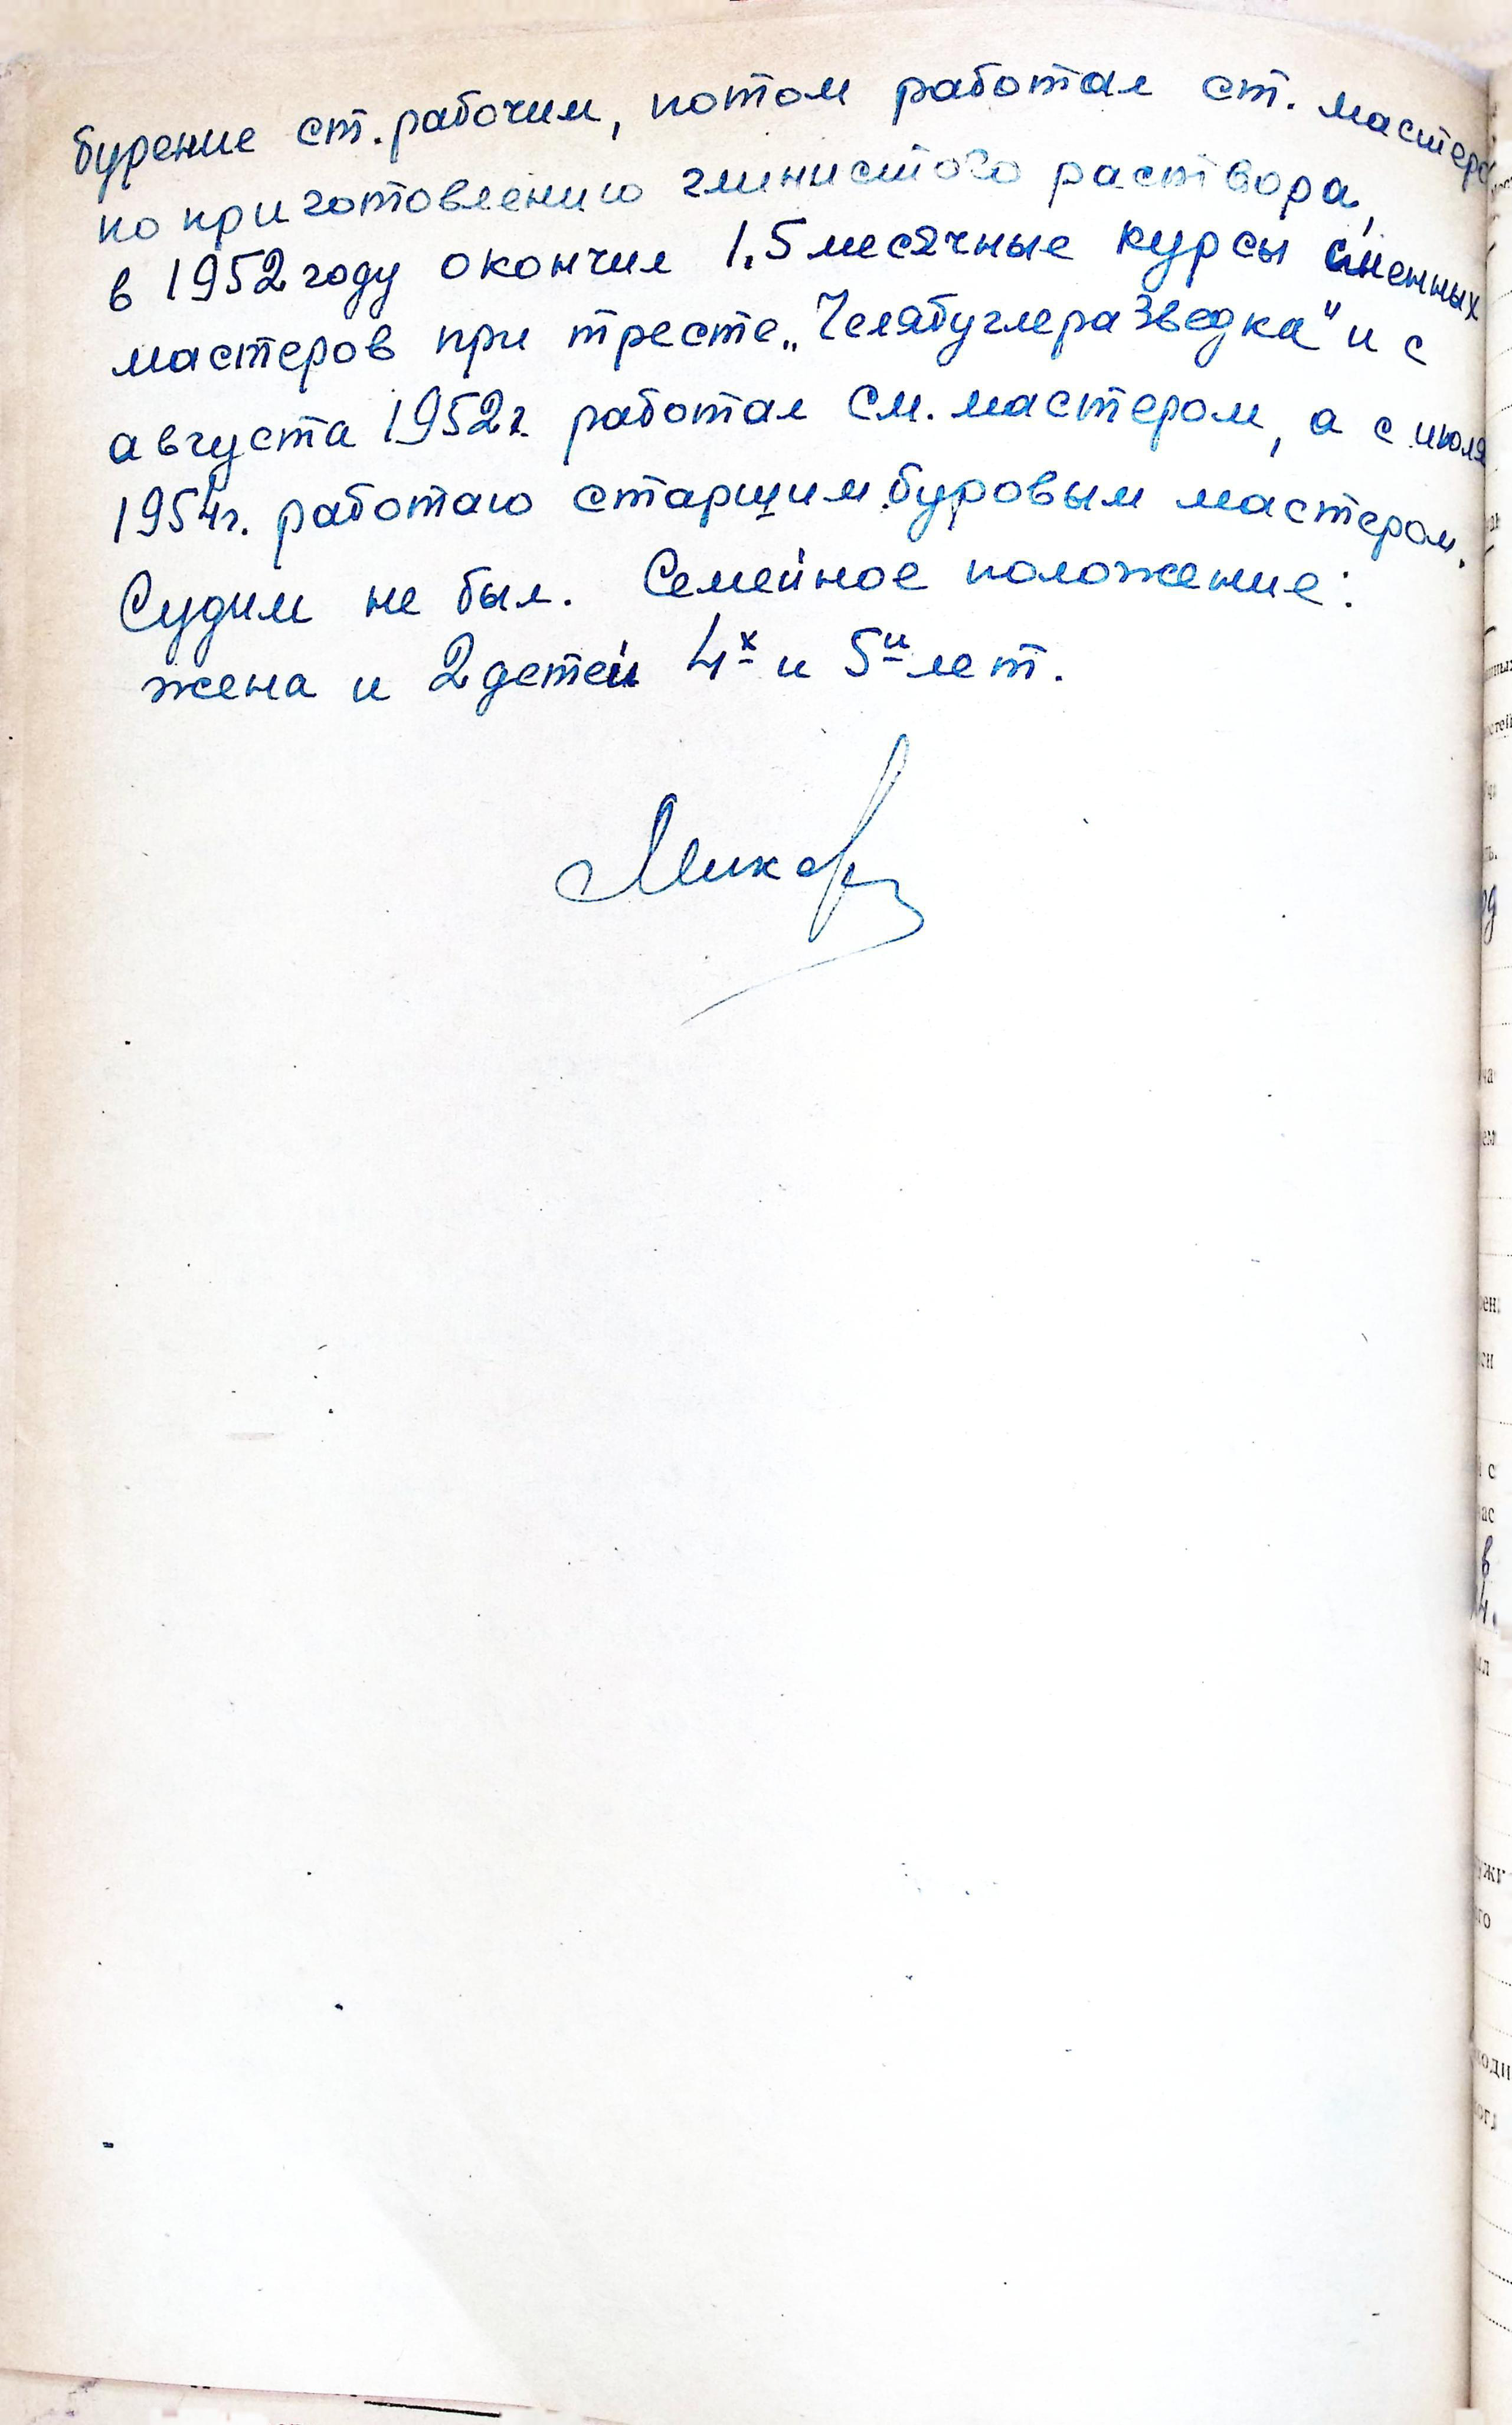 бурение ст. рабочим, потом работал ст. мастером
по приготовлению глинистого раствора,
в 1952 году окончил 1,5 месячные курсы сменных
мастеров при тресте „Челябуглеразведка" и с
августа 1952 г. работал см. мастером, а с июля
1954 г. работаю старшим буровым мастером.
Судим не был. Семейное положение:
жена и 2 детей 4х и 5и лет.